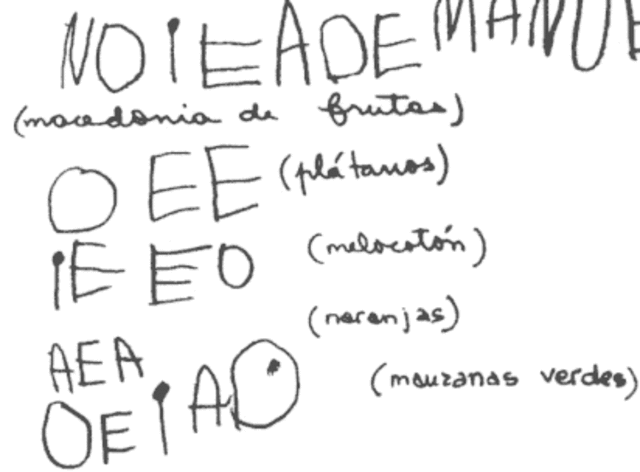 NOIEADE MANUE
(macedonia de frutas)
OEE (plátanos)
IEEO (melocotón)
(naranjas)
AEA
OEIAO (manzanas verdes)